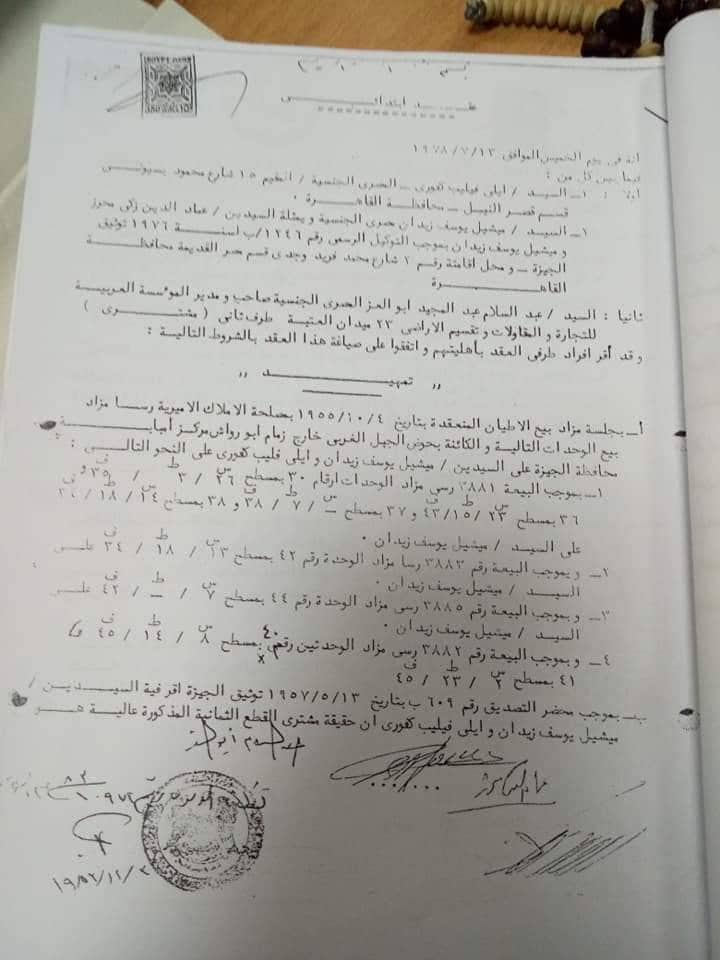 EGYPT
عقد ابتدائى
انه فى يوم الخميس الموافق ١٩٧٨/٧/١٣
فيما بين كل من :
اولا : ١ـ السيد / ايلى فيليب كهورى ـ المصرى الجنسية / المقيم ١٥ شارع محمود بسيونى
قسم قصر النيل ـ محافظة القاهرة ٠
١ـ السيد / ميشيل يوسف زيدان مصرى الجنسية و يمثلة السيد ين / عماد الدين زكى محرز
و ميشيل يوسف زيدان بموجب التوكيل الرسمى رقم ١٢٤٦/ب لسنة ١٩٧٦ توثيق
الجيزة ـ و محل اقامتة رقم ٢ شارع محمد فريد وجدى قسم مصر القديمة محافظة
القاهرة
ثانيا : السيد / عبد السلام عبد المجيد ابو العز المصرى الجنسية صاحب و مدير المؤسسة العربية
للتجارة و المقاولات و تقسيم الاراضى ٢٣ ميدان العتبة طرف ثانى ( مشترى )
و قد أقر افراد طرفى العقد بأهليتهم و اتفقوا على صياغة هذا العقد بالشروط التالية :
,, تمهيد ,,
أـ بجلسة مزاد بيع الاطيان المنعقدة بتاريخ ١٩٥٥/١٠/٤ بمصلحة الاملاك الاميرية رسا مزاد
بيع الوحدات التالية و الكائنة بحوض الجبل الغربى خارج زمام ابو رواش مركز أمبابة
محافظة الجيزة على السيدين / ميشيل يوسف زيدان و ايلى فليب كهورى على النحو التالى :
١ـ بموجب البيعة ٣٨٨١ رسى مزاد الوحدات ارقام ٣٠ بمسطح س ٢٦ / ط ٣ / ف ٣٥ و
٣٦ بمسطح س ٢٣ / ط ١٥ / ف ٤٣ و ٣٧ بمسطح س ـ / ط ٧ / ف ٣٨ و ٣٨ بمسطح س ١٤ / ط ١٨ /
على السيد / ميشيل يوسف زيدان ٠
٢ـ و بموجب البيعة رقم ٣٨٨٣ رسا مزاد الوحدة رقم ٤٢ بمسطح س ١٣ / ط ١٨ / ف ٣٤ علـى
السيد / ميشيل يوسف زيدان ٠
٣ـ و بموجب البيعة رقم ٣٨٨٥ رسى مزاد الوحدة رقم ٤٤ بمسطح س ٧ / ط ـ / ف ٤٢ علـى
السيد / ميشيل يوسف زيدان ٠
٤ـ و بموجب البيعة رقم ٣٨٨٢ رسى مزاد الوحدتين رقم ٤٠ بمسطح س ٨ / ط ١٤ / ف ٤٥ و
٤١ بمسطح س ٢ / ط ٢٣ / ف ٤٥
بـ بموجب محضر التصديق رقم ٦٠٩ ب بتاريخ ١٩٥٧/٥/١٣ توثيق الجيزة اقر فية السيدين /
ميشيل يوسف زيدان و ايلى فيليب كهورى ان حقيقة مشترى القطع الثمانية المذكورة عالية هـو